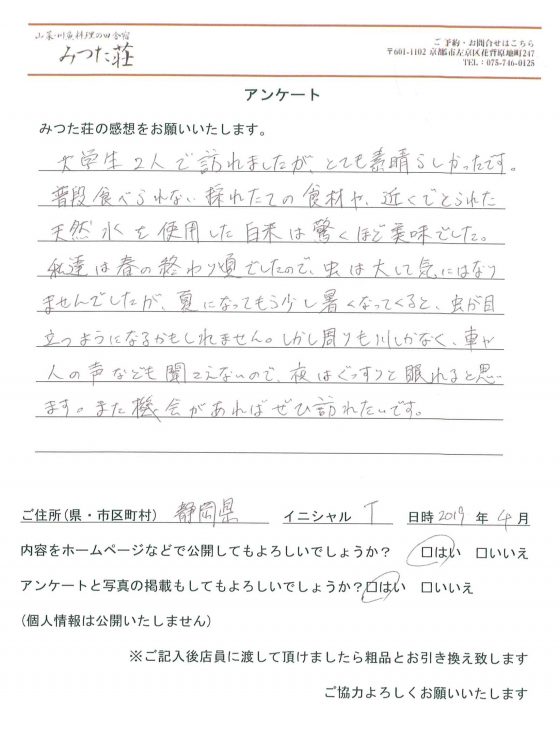 山菜・川魚料理の田舎宿
みつた荘
ご予約・お問合せはこちら
〒601-1102 京都市左京区花脊原地町247
TEL：075-746-0125
アンケート
みつた荘の感想をお願いいたします。
大学生2人で訪れましたが、とても素晴らしかったです。
普段食べられない採れたての食材や、近くでとられた
天然水を使用した白米は驚くほど美味でした。
私達は春の終わり頃でしたので、虫は大して気にはなり
ませんでしたが、夏になってもう少し暑くなってくると、虫が目
立つようになるかもしれません。しかし周りも川しかなく、車や
人の声なども聞こえないので、夜はぐっすりと眠れると思い
ます。また機会があればぜひ訪れたいです。
ご住所(県・市区町村) 静岡県 イニシャル T 日時 2019 年 4 月
内容をホームページなどで公開してもよろしいでしょうか？ □はい □いいえ
アンケートと写真の掲載もしてもよろしいでしょうか？□はい □いいえ
(個人情報は公開いたしません)
※ご記入後店員に渡して頂けましたら粗品とお引き換え致します
ご協力よろしくお願いいたします